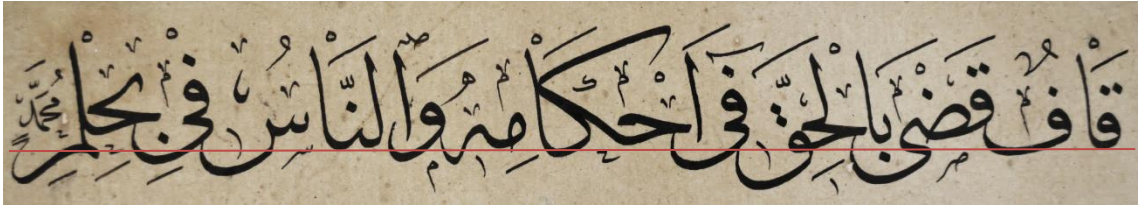 قاف قضى بالحق فى احكامه والناس فى بحلم محمد